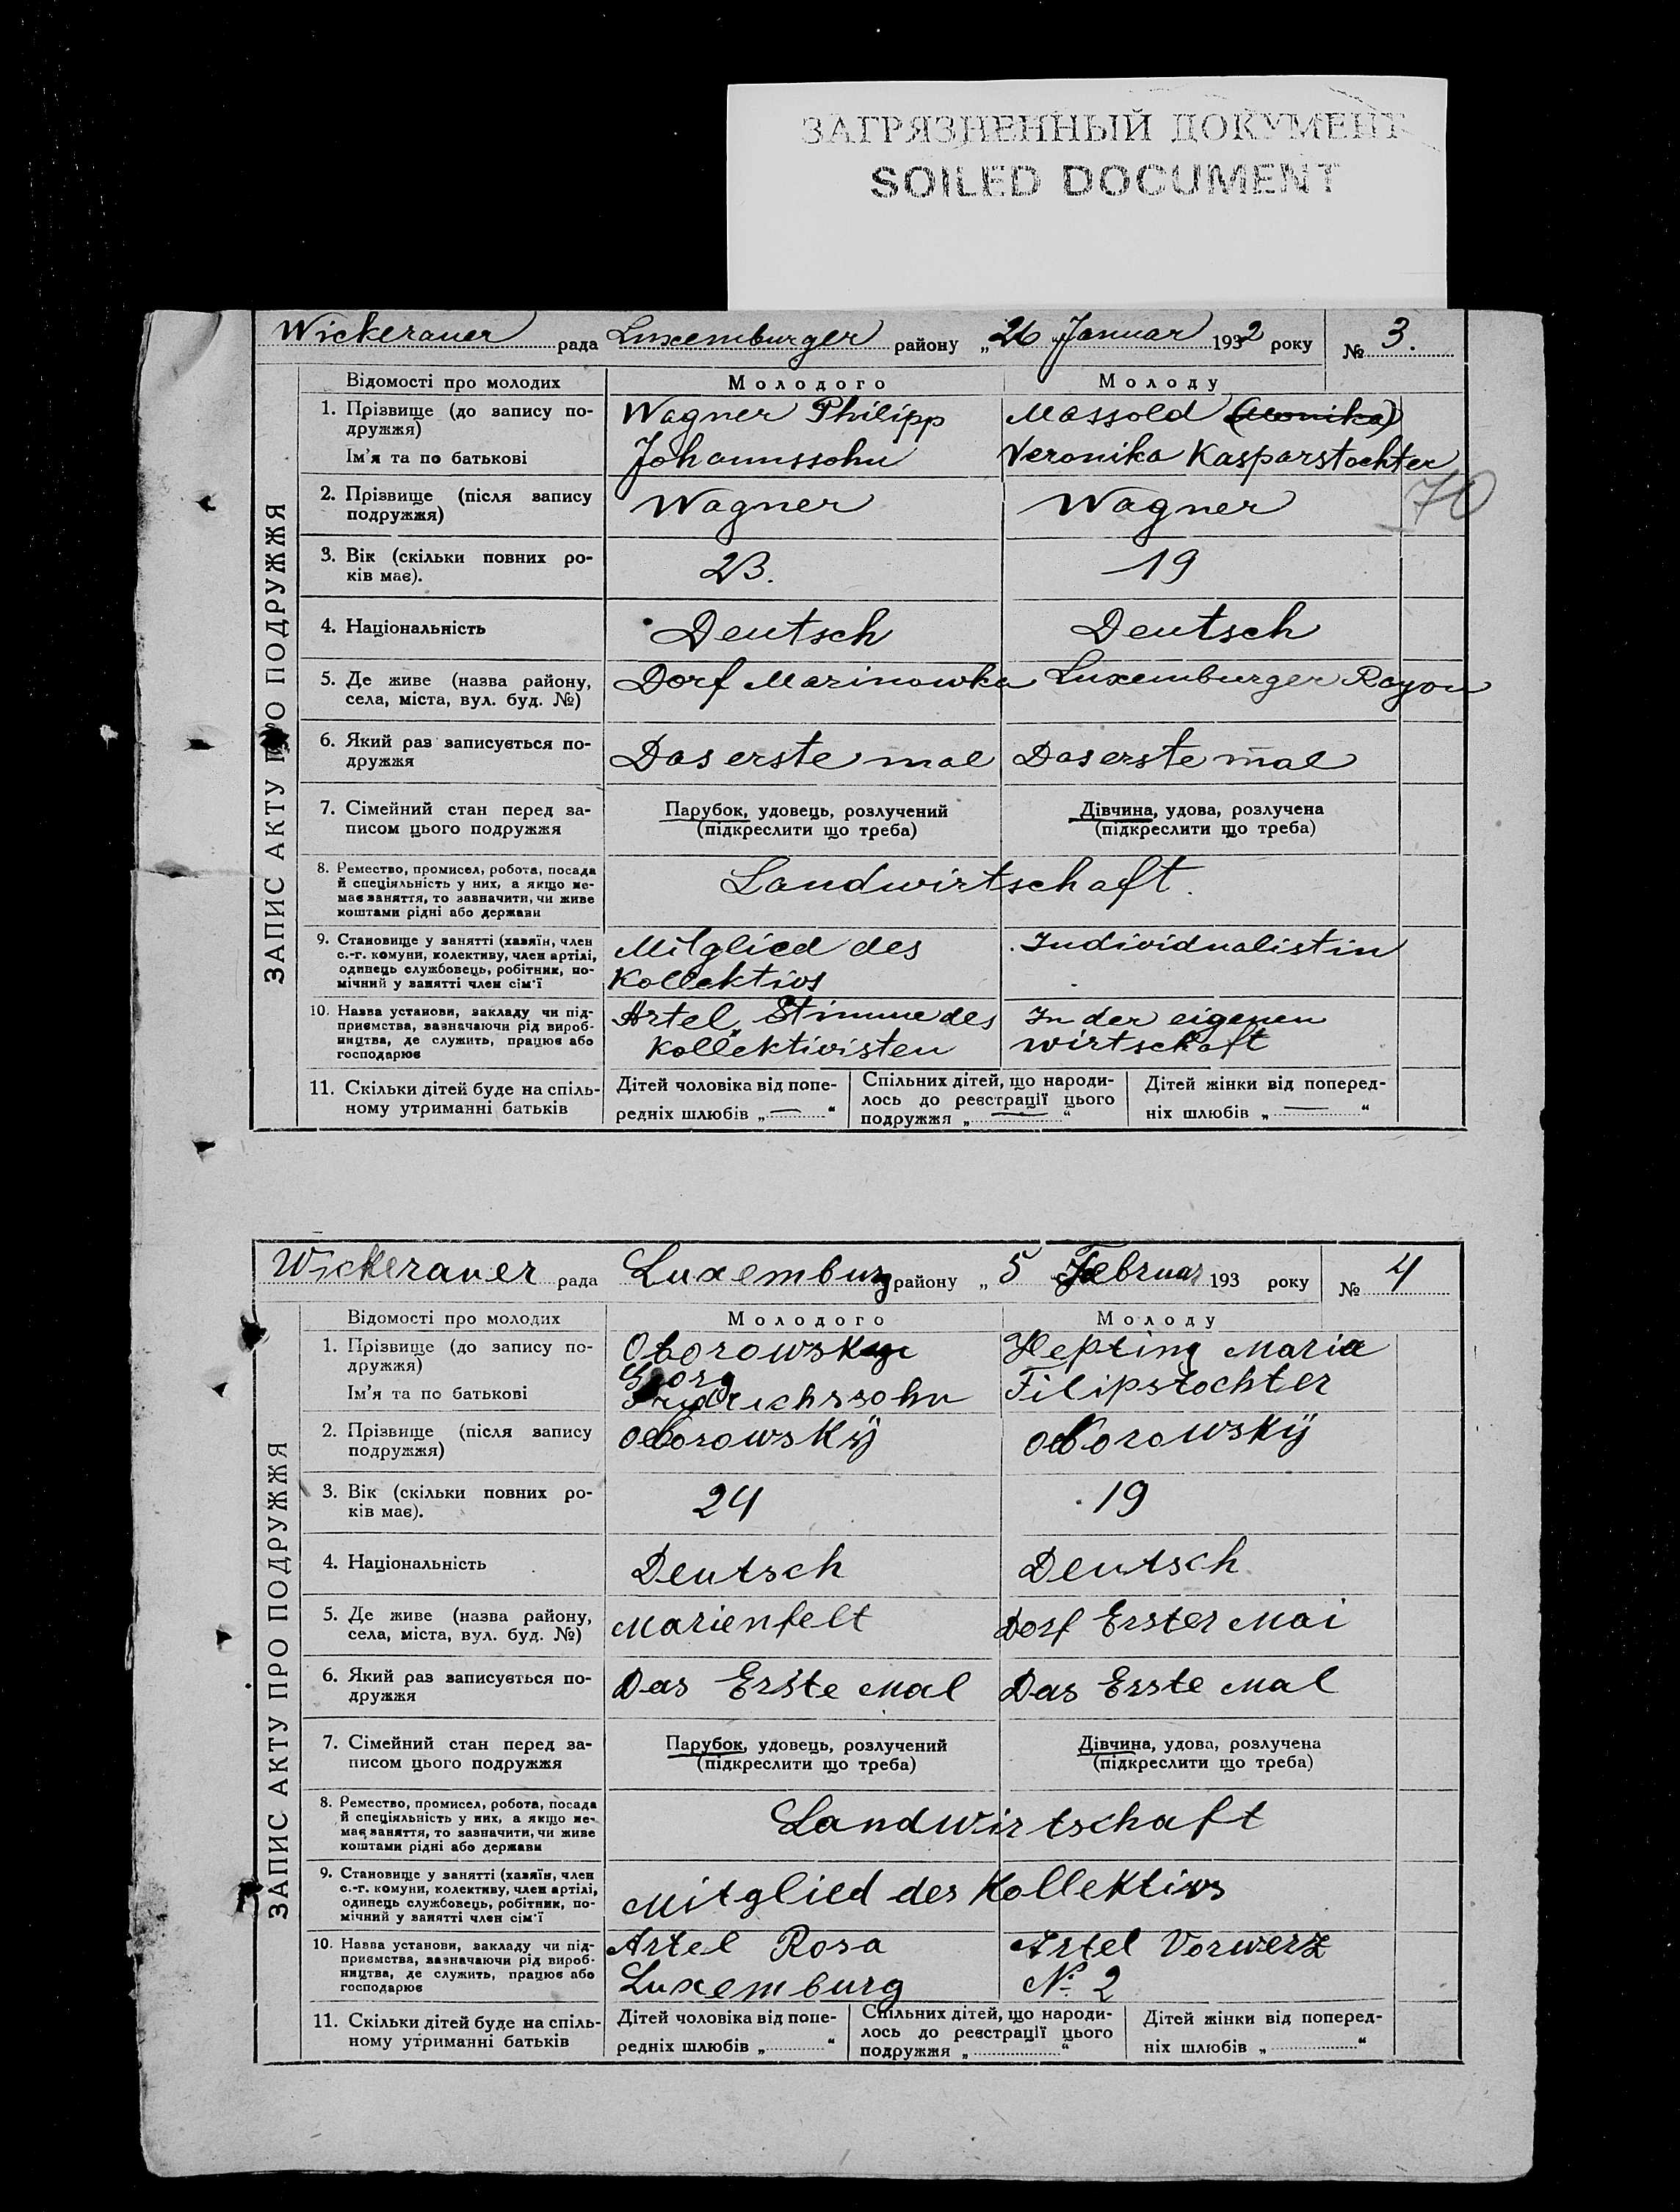 ЗАГРЯЗНЕННЫЙ ДОКУМЕНТ
SOILED DOCUMENT
Wickerauer рада Luxemburger району „26 Januar 1932 року № 3.
ЗАПИС АКТУ ПРО ПОДРУЖЖЯ
Відомості про молодих Молодого Молоду
1. Прізвище (до запису по- Wagner Philipp Massold (Monika)
дружжя)
Ім'я та по батькові Johannssohn Veronika Kasparstochter
2. Прізвище (після запису Wagner Wagner 70
подружжя)
3. Вік (скільки повних ро- 23. 19
ків має).
4. Національність Deutsch Deutsch
5. Де живе (назва району, Dorf Marinowka Luxemburger Rayon
села, міста, вул. буд. №)
6. Який раз записується по- Das erste mal Das erste mal
дружжя
7. Сімейний стан перед за- Парубок, удовець, розлучений Дівчина, удова, розлучена
писом цього подружжя (підкреслити що треба) (підкреслити що треба)
8. Ремество, промисел, робота, посада
й спеціяльність у них, а якщо не- Landwirtschaft.
має заняття, то зазначити, чи живе
коштами рідні або держави
9. Становище у занятті (хазяїн, член Mitglied des Individualistin
с.-г. комуни, колективу, член артілі,
одинець службовець, робітник, по- Kollektivs
мічний у занятті член сім'ї
10. Назва установи, закладу чи під- Artel „Stimme des In der eigenen
приємства, зазначаючи рід вироб-
ництва, де служить, працює або Kollektivisten wirtschaft
господарює
11. Скільки дітей буде на спіль- Дітей чоловіка від попе- Спільних дітей, що народи- Дітей жінки від поперед-
ному утриманні батьків редніх шлюбів „ — “ лось до реєстрації цього ніх шлюбів „ — “
подружжя „ — “
Wickerauer рада Luxemburg району „ 5 Februar 193 року № 4
ЗАПИС АКТУ ПРО ПОДРУЖЖЯ
Відомості про молодих Молодого Молоду
1. Прізвище (до запису по- Hepting Maria
дружжя)
Ім'я та по батькові Georg Filipstochter
Friedrichssohn
2. Прізвище (після запису Oborowskÿ Oborowskÿ
подружжя)
3. Вік (скільки повних ро- 24 19
ків має).
4. Національність Deutsch Deutsch
5. Де живе (назва району, Marienfelt Dorf Erster Mai
села, міста, вул. буд. №)
6. Який раз записується по- Das Erste Mal Das Erste Mal
дружжя
7. Сімейний стан перед за- Парубок, удовець, розлучений Дівчина, удова, розлучена
писом цього подружжя (підкреслити що треба) (підкреслити що треба)
8. Ремество, промисел, робота, посада
й спеціяльність у них, а якщо не- Landwirtschaft
має заняття, то зазначити, чи живе
коштами рідні або держави
9. Становище у занятті (хазяїн, член
с.-г. комуни, колективу, член артілі, Mitglied des Kollektivs
одинець службовець, робітник, по-
мічний у занятті член сім'ї
10. Назва установи, закладу чи під- Artel Rosa Artel Vorwerz
приємства, зазначаючи рід вироб-
ництва, де служить, працює або Luxemburg № 2
господарює
11. Скільки дітей буде на спіль- Дітей чоловіка від попе- Спільних дітей, що народи- Дітей жінки від поперед-
ному утриманні батьків редніх шлюбів „ “ лось до реєстрації цього ніх шлюбів „ “
подружжя „ “